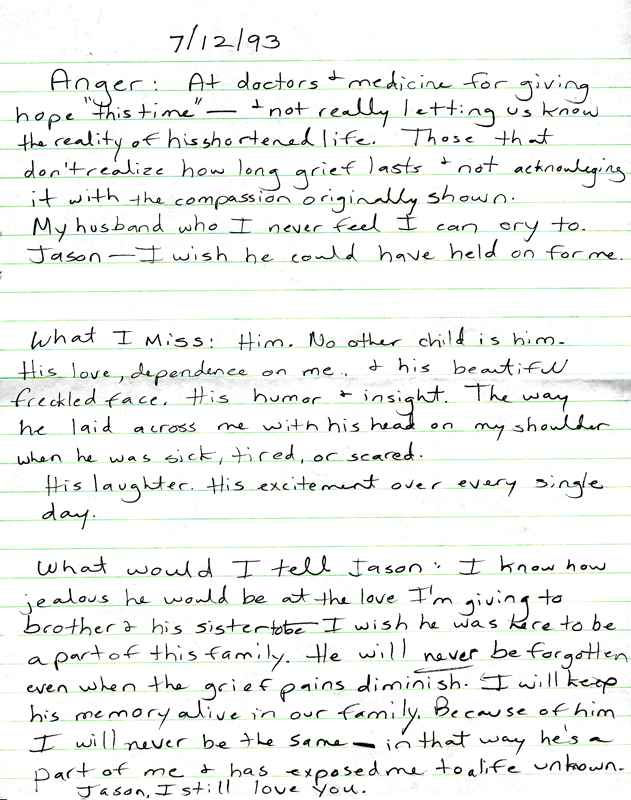 7/12/93
Anger: At doctors & medicine for giving
hope "this time" — & not really letting us know
the reality of his shortened life. Those that
don't realize how long grief lasts & not acknowleging
it with the compassion originally shown.
My husband who I never feel I can cry to.
Jason — I wish he could have held on for me.
What I Miss: Him. No other child is him.
His love, dependence on me. & his beautiful
freckled face. His humor & insight. The way
he laid across me with his head on my shoulder
when he was sick, tired, or scared.
His laughter. His excitement over every single
day.
What would I tell Jason: I know how
jealous he would be at the love I'm giving to
brother & his sister to be I wish he was here to be
a part of this family. He will never be forgotten
even when the grief pains diminish. I will keep
his memory alive in our family. Because of him
I will never be the same — in that way he's a
part of me & has exposed me to a life unknown.
Jason, I still love you.